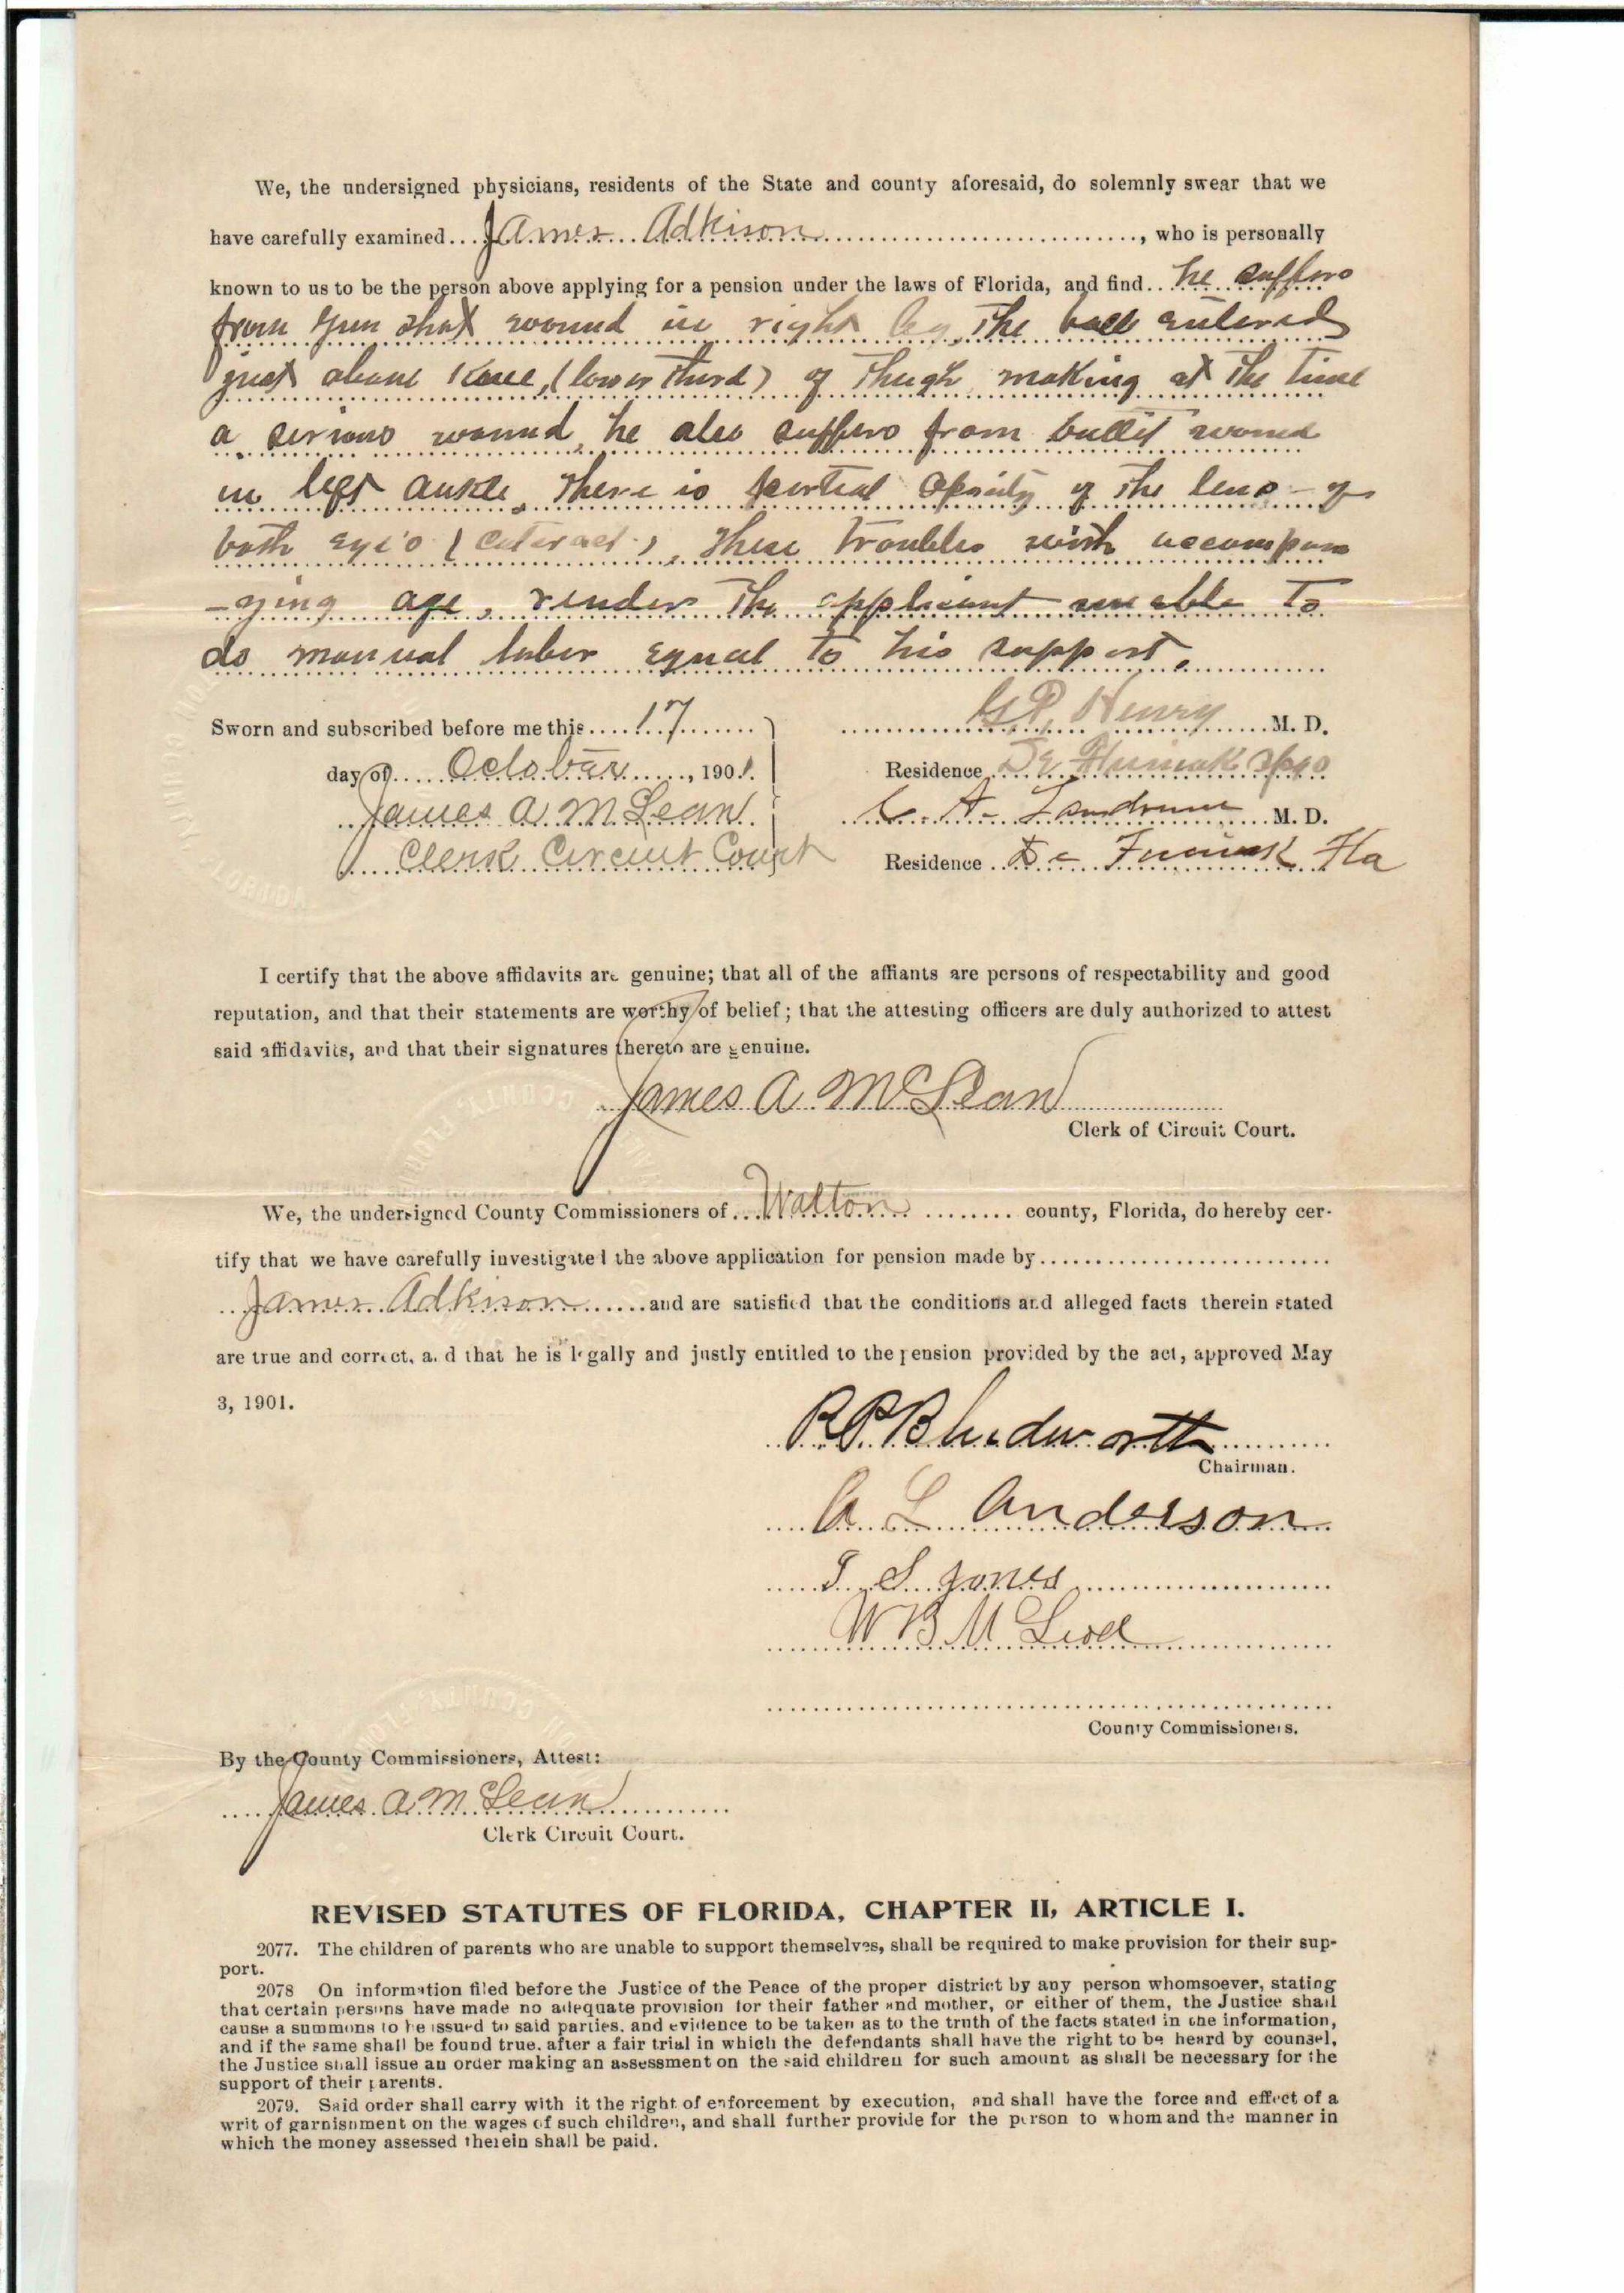 We, the undersigned physicians, residents of the State and county aforesaid, do solemnly swear that we
have carefully examined James Adkison, who is personally
known to us to be the person above applying for a pension under the laws of Florida, and find he suffers
from gun shot wound in right leg, The ball entered
just above Knee, (lower third) of Thugh making at The time
a serious wound, he also suffers from bullit wound
in left ankle, There is partial Opacity of The lens of
both Eye's (Cataract), These troubles with accompan
-ying age, render The applicant unable To
do manual labor Equal To his support.
Sworn and subscribed before me this 17
G.P. Henry M. D.
day of October, 1901.
Residence De Funiak Spgs
James A McLean
C. A. Landrum M. D.
Clerk Circuit Court
Residence De Funiak Fla
I certify that the above affidavits are genuine; that all of the affiants are persons of respectability and good
reputation, and that their statements are worthy of belief; that the attesting officers are duly authorized to attest
said affidavits, and that their signatures thereto are genuine.
James A McLean
Clerk of Circuit Court.
We, the undersigned County Commissioners of Walton county, Florida, do hereby cer-
tify that we have carefully investigated the above application for pension made by
James Adkison and are satisfied that the conditions and alleged facts therein stated
are true and correct, and that he is legally and justly entitled to the pension provided by the act, approved May
3, 1901.
R P Bludworth
Chairman.
A L Anderson
J. S. Jones
W B McLeod
County Commissioners.
By the County Commissioners, Attest:
James A McLean
Clerk Circuit Court.
REVISED STATUTES OF FLORIDA, CHAPTER II, ARTICLE I.
2077. The children of parents who are unable to support themselves, shall be required to make provision for their sup-
port.
2078 On information filed before the Justice of the Peace of the proper district by any person whomsoever, stating
that certain persons have made no adequate provision for their father and mother, or either of them, the Justice shall
cause a summons to be issued to said parties, and evidence to be taken as to the truth of the facts stated in the information,
and if the same shall be found true, after a fair trial in which the defendants shall have the right to be heard by counsel,
the Justice shall issue an order making an assessment on the said children for such amount as shall be necessary for the
support of their parents.
2079. Said order shall carry with it the right of enforcement by execution, and shall have the force and effect of a
writ of garnishment on the wages of such children, and shall further provide for the person to whom and the manner in
which the money assessed therein shall be paid.